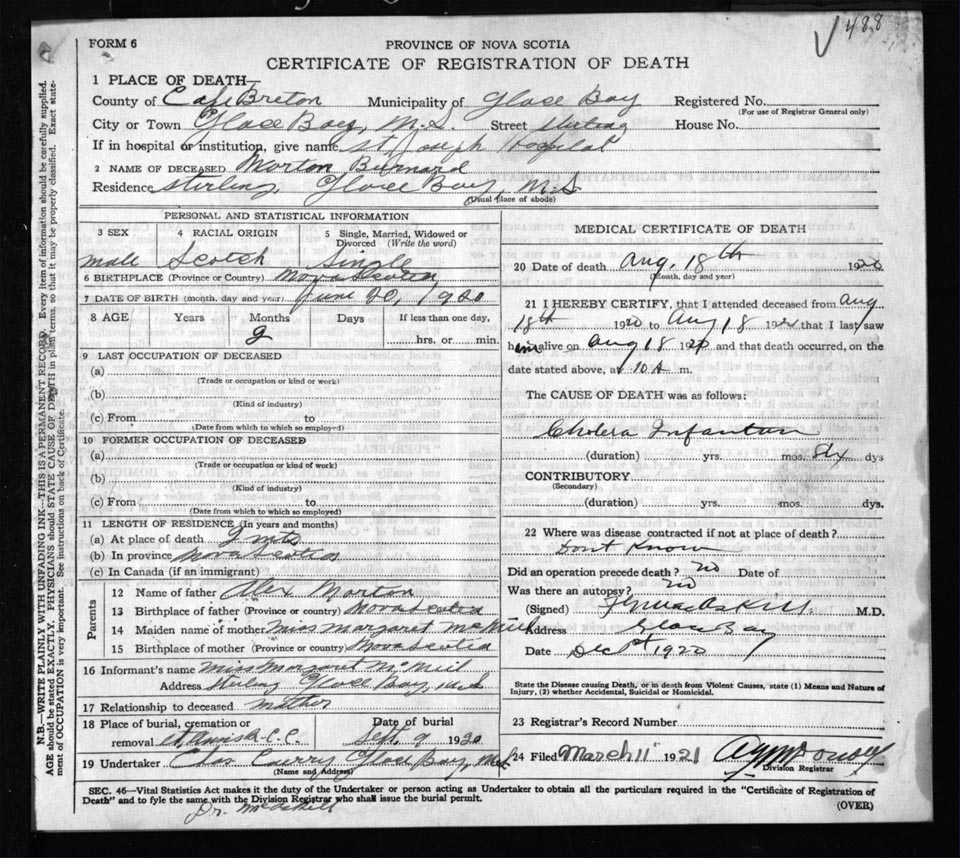 488
FORM 6
PROVINCE OF NOVA SCOTIA
CERTIFICATE OF REGISTRATION OF DEATH
1 PLACE OF DEATH—
County of Cape Breton Municipality of Glace Bay Registered No.
(For use of Registrar General only)
City or Town Glace Bay, N.S. Street Sterling House No.
If in hospital or institution, give name St Joseph Hospital
2 NAME OF DECEASED Morton Burnard
Residence Sterling, Glace Bay, N.S.
(Usual place of abode)
PERSONAL AND STATISTICAL INFORMATION
3 SEX 4 RACIAL ORIGIN 5 Single, Married, Widowed or Divorced (Write the word)
male Scotch Single
6 BIRTHPLACE (Province or Country) Nova Scotia
7 DATE OF BIRTH (month, day and year) June 20, 1920
8 AGE Years Months Days If less than one day,
2 hrs. or min.
9 LAST OCCUPATION OF DECEASED
(a)
(Trade or occupation or kind or work)
(b)
(Kind of industry)
(c) From to
(Date from which to which so employed)
10 FORMER OCCUPATION OF DECEASED
(a)
(Trade or occupation or kind of work)
(b)
(Kind of industry)
(c) From to
(Date from which to which so employed)
11 LENGTH OF RESIDENCE (In years and months)
(a) At place of death 2 mts
(b) In province Nova Scotia
(c) In Canada (if an immigrant)
Parents
12 Name of father Alex Morton
13 Birthplace of father (Province or country) Nova Scotia
14 Maiden name of mother Miss Margaret McNeil
15 Birthplace of mother (Province or country) Nova Scotia
16 Informant's name Miss Margaret McNeil
Address Sterling Glace Bay, N.S
17 Relationship to deceased Mother
18 Place of burial, cremation or removal C.C. Date of burial Sept. 9 1920
19 Undertaker Chas Curry Glace Bay, N.S
(Name and Address)
MEDICAL CERTIFICATE OF DEATH
20 Date of death Aug. 18th 1920
(Month, day and year)
21 I HEREBY CERTIFY, that I attended deceased from Aug
18th 1920 to Aug 18 1920 that I last saw
him alive on Aug 18 1920 and that death occurred, on the
date stated above, at 10 A m.
The CAUSE OF DEATH was as follows:
Cholera Infantum
(duration) yrs. mos. Six dys
CONTRIBUTORY
(Secondary)
(duration) yrs. mos. dys.
22 Where was disease contracted if not at place of death?
Dont Know
Did an operation precede death? no Date of
Was there an autopsy? no
(Signed) M.D.
Address Glace Bay
Date Dec 1920
State the Disease causing Death, or in death from Violent Causes, state (1) Means and Nature of
Injury, (2) whether Accidental, Suicidal or Homicidal.
23 Registrar's Record Number
24 Filed March 11" 1921
Division Registrar
SEC. 46—Vital Statistics Act makes it the duty of the Undertaker or person acting as Undertaker to obtain all the particulars required in the "Certificate of Registration of
Death" and to fyle the same with the Division Registrar who shall issue the burial permit.
(OVER)
Dr. McAskill
N.B.—WRITE PLAINLY WITH UNFADING INK—THIS IS A PERMANENT RECORD. Every item of information should be carefully supplied.
AGE should be stated EXACTLY. PHYSICIANS should STATE CAUSE OF DEATH in plain terms, so that it may be properly classified. Exact state-
ment of OCCUPATION is very important. See instructions on back of Certificate.